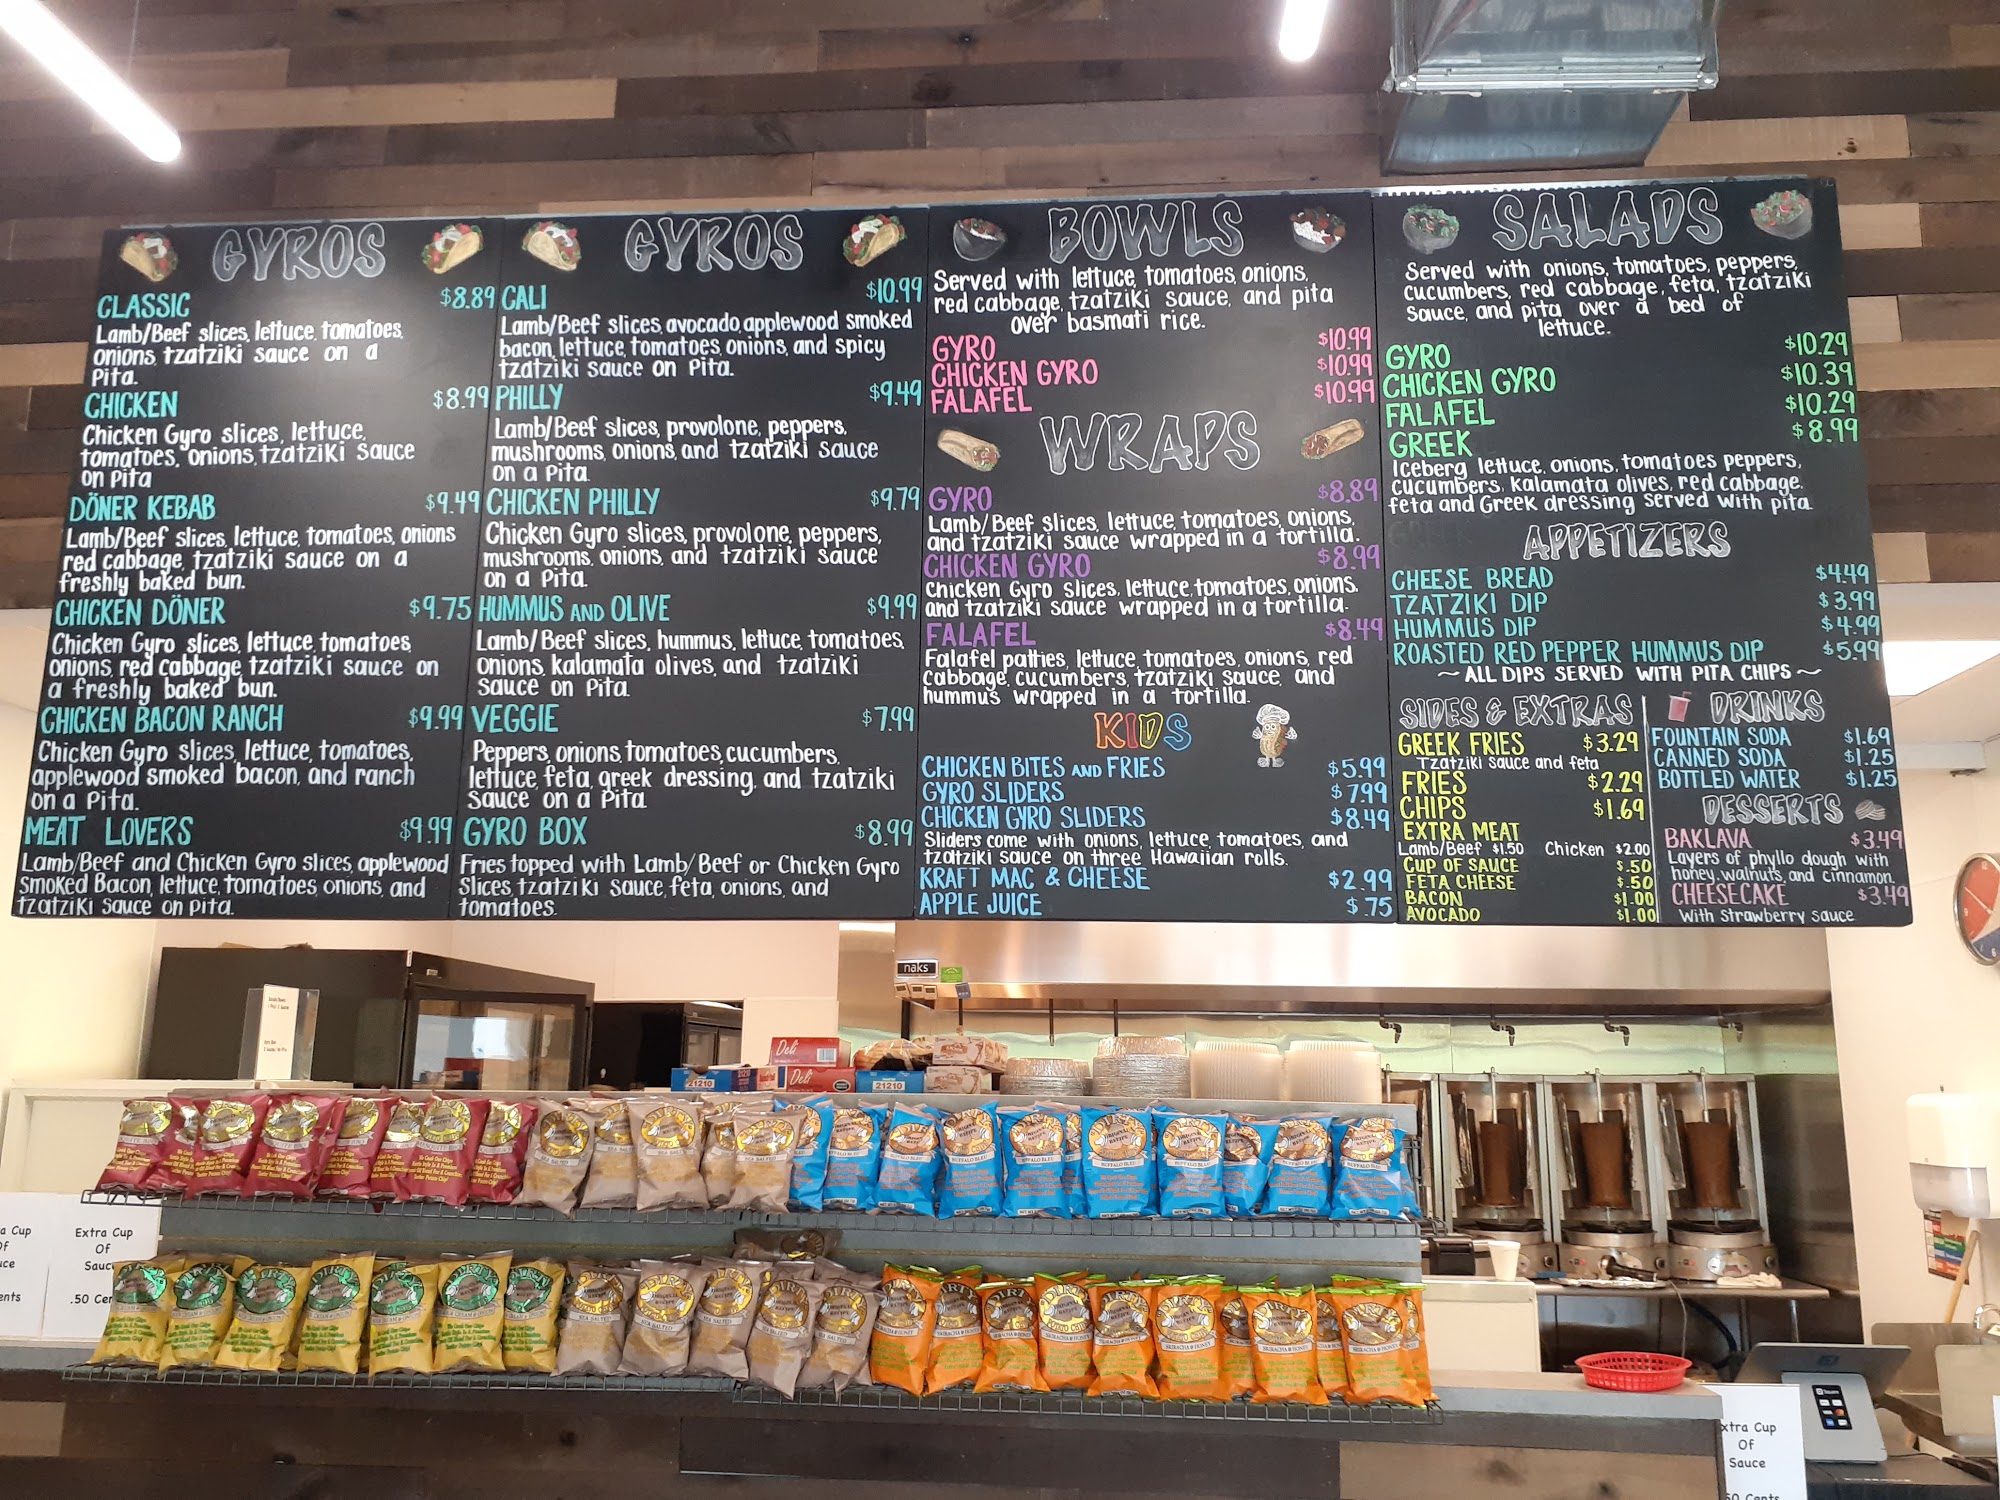 GYROS
CLASSIC $8.89
Lamb/Beef slices, lettuce, tomatoes,
onions, tzatziki sauce on a
Pita.
CHICKEN $8.99
Chicken Gyro slices, lettuce,
tomatoes, onions, tzatziki sauce
on Pita
DÖNER KEBAB $9.49
Lamb/Beef slices, lettuce, tomatoes, onions
red cabbage, tzatziki sauce on a
freshly baked bun.
CHICKEN DÖNER $9.75
Chicken Gyro slices, lettuce, tomatoes,
onions, red cabbage, tzatziki sauce on
a freshly baked bun.
CHICKEN BACON RANCH $9.99
Chicken Gyro slices, lettuce, tomatoes,
applewood smoked bacon, and ranch
on a Pita.
MEAT LOVERS $9.99
Lamb/Beef and Chicken Gyro slices, applewood
Smoked Bacon, lettuce, tomatoes, onions, and
tzatziki sauce on Pita.
GYROS
CALI $10.99
Lamb/Beef slices, avocado, applewood smoked
bacon, lettuce, tomatoes, onions, and spicy
tzatziki sauce on Pita.
PHILLY $9.49
Lamb/Beef slices, provolone, peppers,
mushrooms, onions, and tzatziki sauce
on a Pita.
CHICKEN PHILLY $9.79
Chicken Gyro slices, provolone, peppers,
mushrooms, onions, and tzatziki sauce
on a Pita.
HUMMUS AND OLIVE $9.99
Lamb/Beef slices, hummus, lettuce, tomatoes,
onions, kalamata olives, and tzatziki
sauce on Pita.
VEGGIE $7.99
Peppers, onions, tomatoes, cucumbers,
lettuce, feta, greek dressing, and tzatziki
sauce on a Pita
GYRO BOX $8.99
Fries topped with Lamb/Beef or Chicken Gyro
Slices, tzatziki sauce, feta, onions, and
tomatoes.
BOWLS
Served with lettuce, tomatoes, onions,
red cabbage, tzatziki sauce, and pita
over basmati rice.
GYRO $10.99
CHICKEN GYRO $10.99
FALAFEL $10.99
WRAPS
GYRO $8.89
Lamb/Beef slices, lettuce, tomatoes, onions,
and tzatziki sauce wrapped in a tortilla.
CHICKEN GYRO $8.99
Chicken Gyro slices, lettuce, tomatoes, onions,
and tzatziki sauce wrapped in a tortilla.
FALAFEL $8.49
Falafel patties, lettuce, tomatoes, onions, red
cabbage, cucumbers, tzatziki sauce, and
hummus wrapped in a tortilla.
KIDS
CHICKEN BITES AND FRIES $5.99
GYRO SLIDERS $7.99
CHICKEN GYRO SLIDERS $8.49
Sliders come with onions, lettuce, tomatoes, and
tzatziki sauce on three Hawaiian rolls.
KRAFT MAC & CHEESE $2.99
APPLE JUICE $.75
SALADS
Served with onions, tomatoes, peppers,
cucumbers, red cabbage, feta, tzatziki
sauce, and pita over a bed of
lettuce.
GYRO $10.29
CHICKEN GYRO $10.39
FALAFEL $10.29
GREEK $8.99
Iceberg lettuce, onions, tomatoes, peppers,
cucumbers, kalamata olives, red cabbage,
feta and Greek dressing served with pita.
APPETIZERS
CHEESE BREAD $4.49
TZATZIKI DIP $3.99
HUMMUS DIP $4.99
ROASTED RED PEPPER HUMMUS DIP $5.99
~ ALL DIPS SERVED WITH PITA CHIPS ~
SIDES & EXTRAS
GREEK FRIES $3.29
Tzatziki sauce and feta
FRIES $2.29
CHIPS $1.69
EXTRA MEAT
Lamb/Beef $1.50 Chicken $2.00
CUP OF SAUCE $.50
FETA CHEESE $.50
BACON $1.00
AVOCADO $1.00
DRINKS
FOUNTAIN SODA $1.69
CANNED SODA $1.25
BOTTLED WATER $1.25
DESSERTS
BAKLAVA $3.49
Layers of phyllo dough with
honey, walnuts, and cinnamon.
CHEESECAKE $3.49
With Strawberry Sauce
naks
Deli
Deli
21210
21210
DIRTY
SEA SALTED
BUFFALO BLEU
SRIRACHA & HONEY
Extra Cup
Of
Sauc
.50 Cen
a Cup
Of
uce
ents
xtra Cup
Of
Sauce
50 Cents